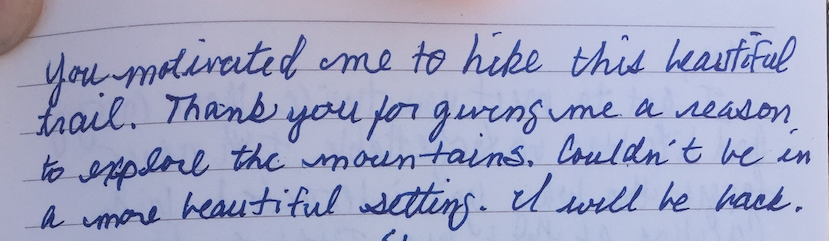 You motivated me to hike this beautiful
trail. Thank you for giving me a reason
to explore the mountains. Couldn't be in
a more beautiful setting. I will be back.